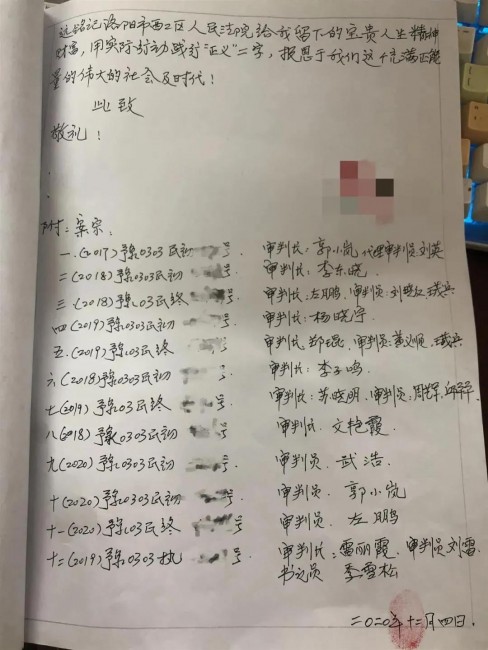 远铭记洛阳市西工区人民法院给我留下的宝贵人生精神
财富，用实际行动践行“正义”二字，报恩于我们这个充满正能
量的伟大的社会及时代！
此致
敬礼！
附：案宗：
一.(2017)豫0303民初 号 审判长：郭小岚 代理审判员刘英
二(2018)豫0303民初 号 审判长：李东晓
三.(2018)豫03民终 号 审判长:左鹏,审判员:刘
四(2019)豫0303民初 号 审判长:杨晓宇
五.(2019)豫03民终 号 审判长 郑琨,审判员:黄义顺
六(2018)豫0303民初 号 审判长:李子鸣
七(2019)豫03民终 号 审判长:苏晓明,审判员:周辉,
八(2018)豫0303民初 号 审判长.文艳霞
九(2020)豫0303民初 号 审判员.武浩
十(2020)豫0303民初 号 审判员.郭小岚
十一(2020)豫03民终 号 审判员.左鹏
十二(2019)豫0303执 号 审判长:雷丽霞.审判员刘雷.
书记员 李雪松
二〇二〇年十二月四日.